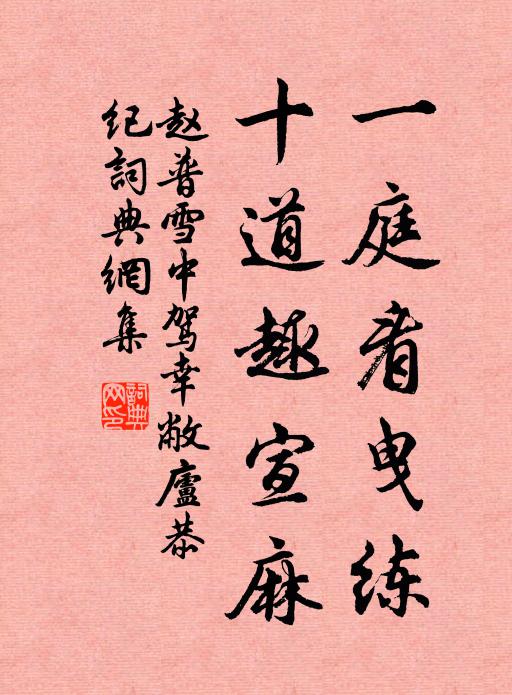 一庭看曳练
十道趣宣麻
赵普雪中驾幸敝廬恭
纪詞典網集
詞典網印